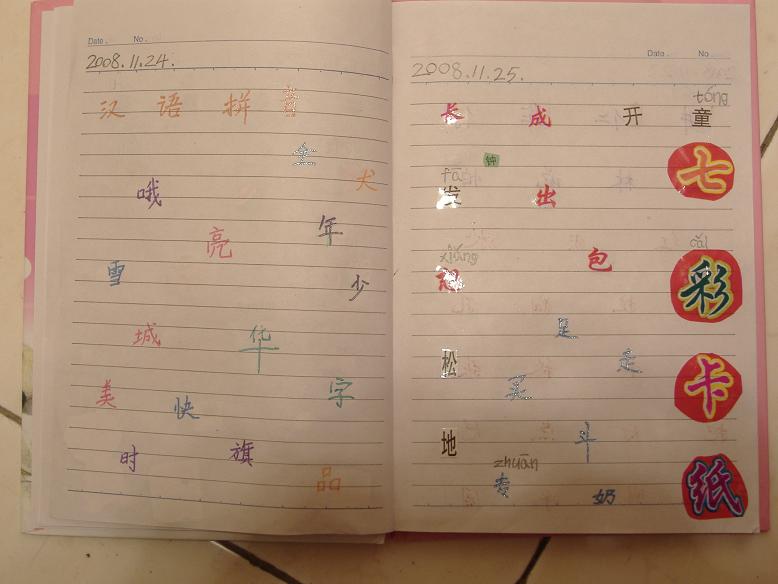 Date . No .
2008.11.24.
汉 语 拼 音
犬
哦
年
亮
雪
少
城
华
美
快
字
时
旗
品
Date . No .
2008.11.25.
tóng
长 成 开 童
钟
七
fā
发 出
xiǎng
包
cǎi
彩
足
松
走
买
卡
地
斗
zhuān
专
奶
纸